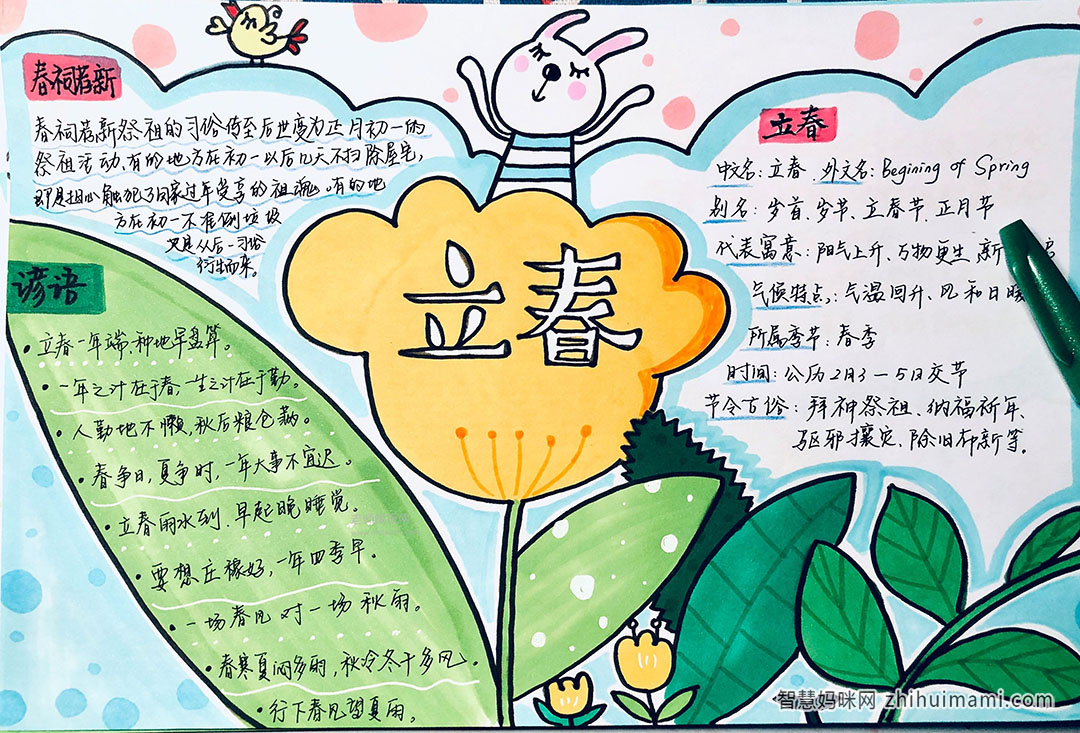 春祠荐新
春祠荐新祭祖的习俗传至后世变为正月初一的
祭祖活动.有的地方在初一以后几天不扫除屋宅,
即是担心触犯了回家过年受享的祖魂.有的地
方在初一不准倒垃圾
又是从后一习俗
衍生而来。
谚语
立春一年端,种地早盘算。
一年之计在于春,一生之计在于勤。
人勤地不懒,秋后粮仓满。
春争日,夏争时,一年大事不宜迟。
立春雨水到,早起晚睡觉。
要想庄稼好,一年四季早.
一场春风对一场秋雨。
春寒夏闷多雨,秋冷冬干多风.
行下春风望夏雨。
立春
立春
中文名:立春 外文名:Begining of Spring
别名:岁首、岁节、立春节、正月节
代表寓意:阳气上升、万物更生、新
气候特点:气温回升、风和日暖
所属季节:春季
时间:公历2月3-5日交节
节令古俗:拜神祭祖、纳福祈年、
驱邪攘灾、除旧布新等.
智慧妈咪网 zhihuimami.com